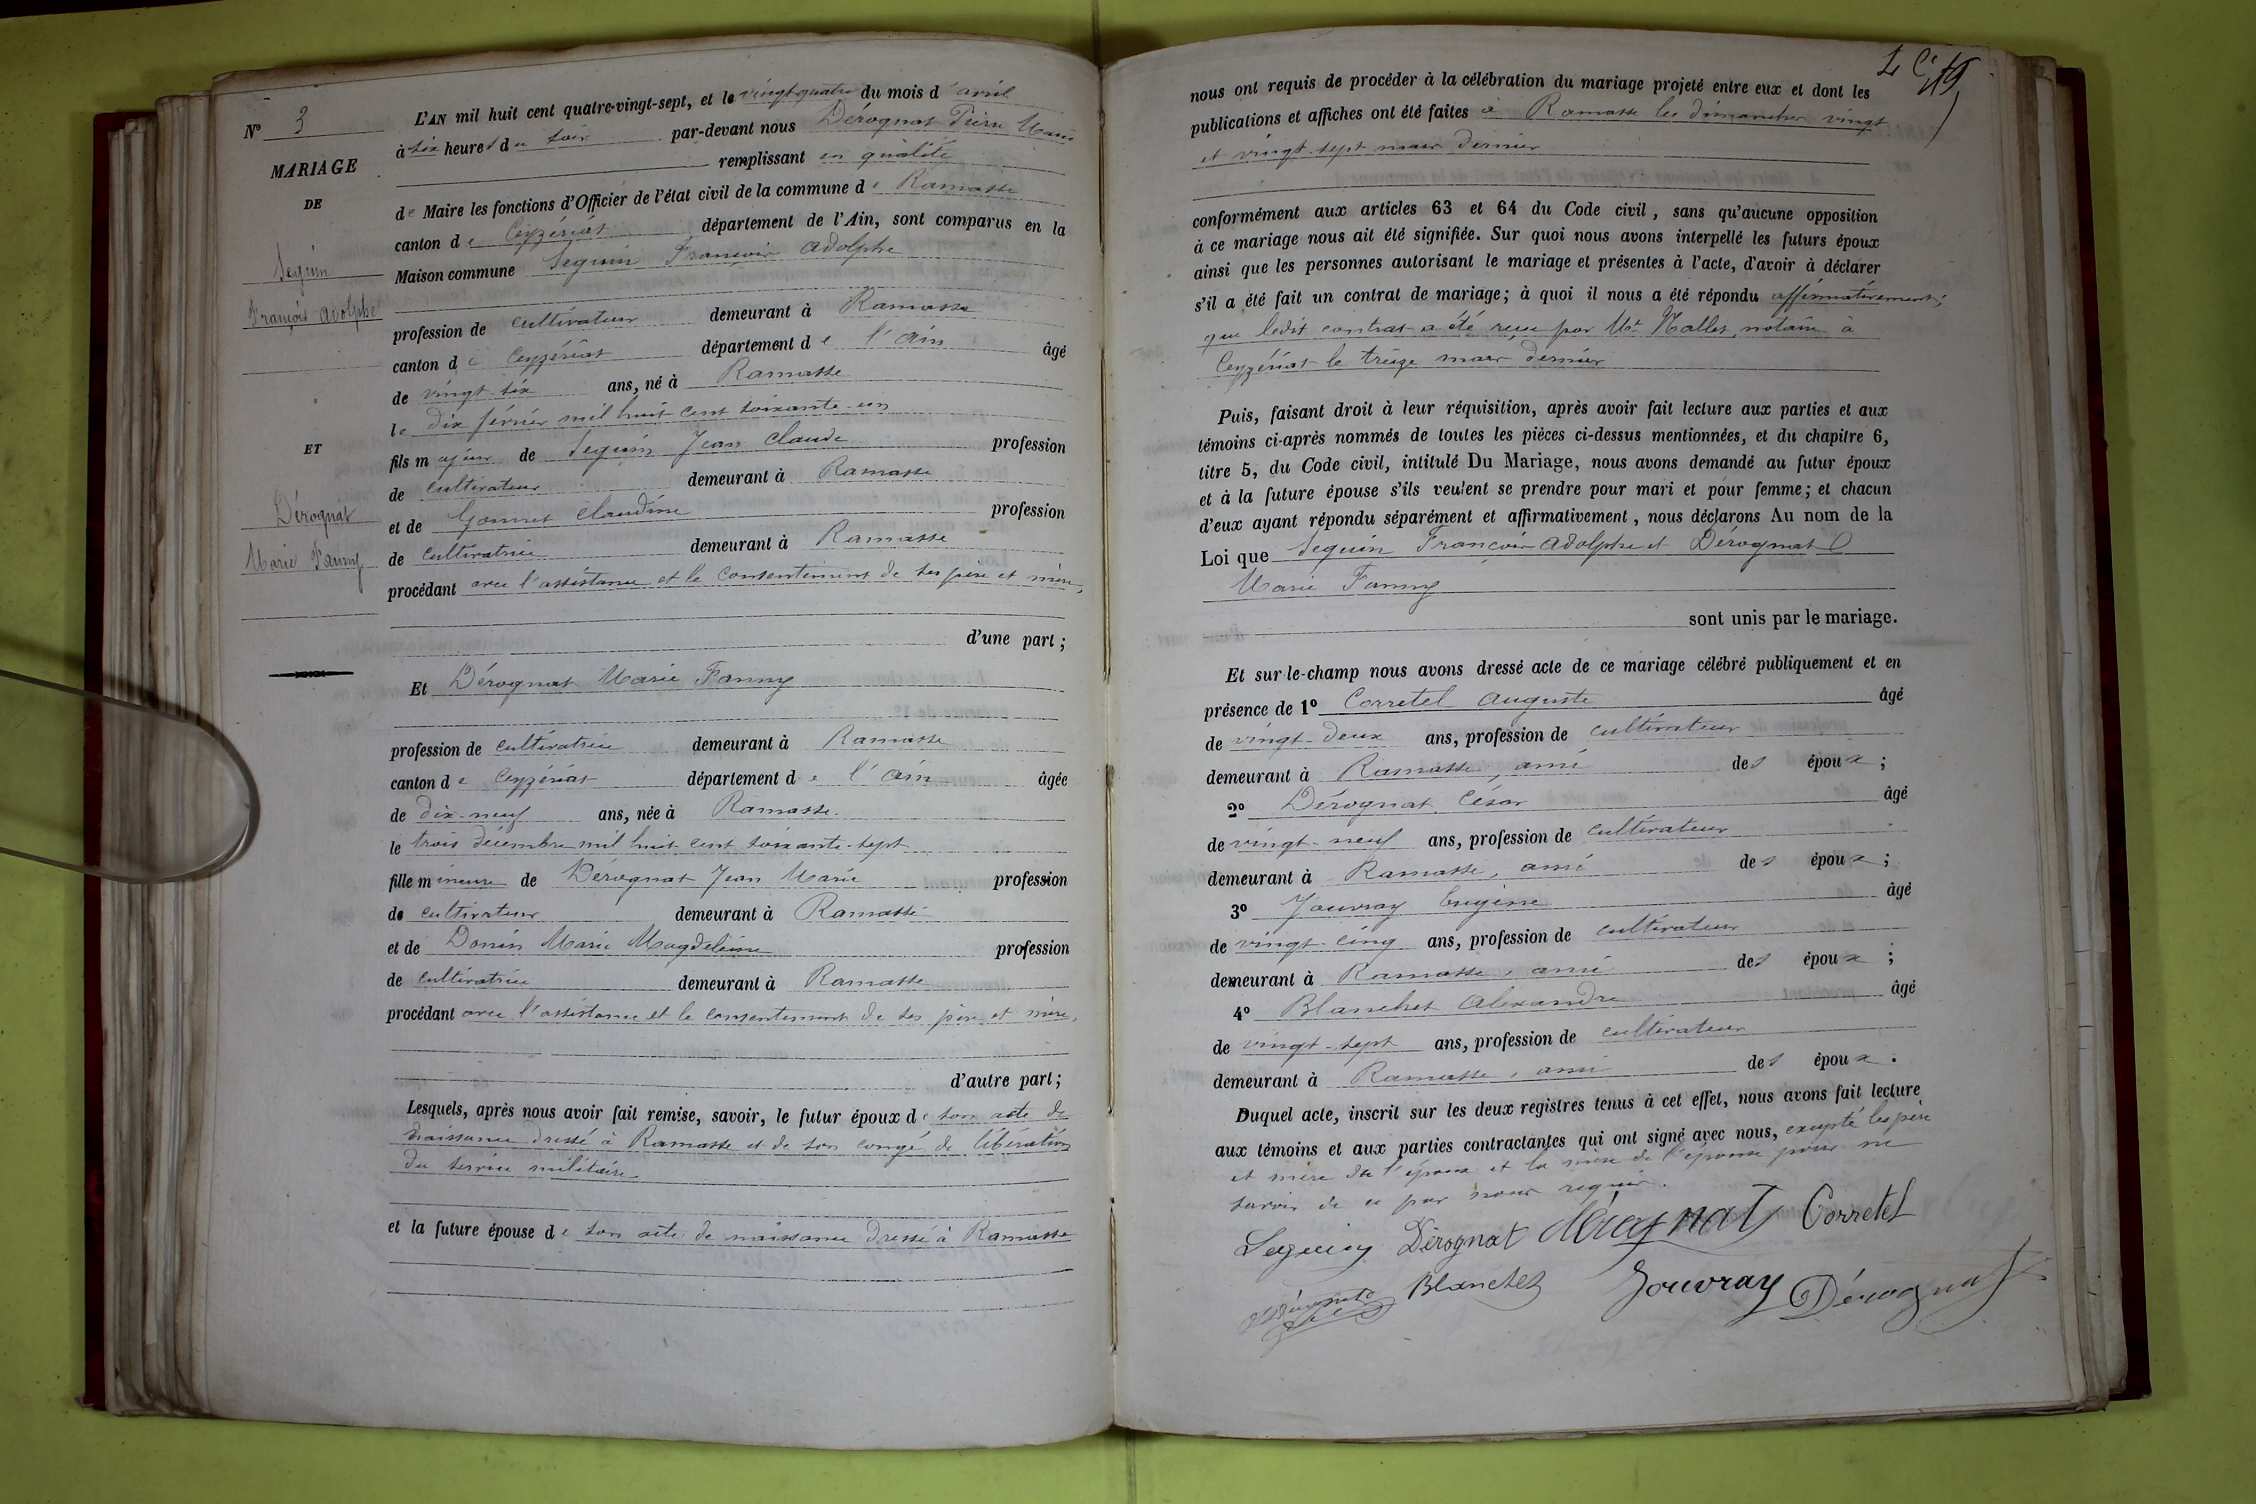 N° 3
MARIAGE
DE
Seguin
François Adolphe
ET
Dérognat
Marie Fanny
L'AN mil huit cent quatre-vingt-sept, et le vingt-quatre du mois d'avril
à six heures du soir par-devant nous Dérognat Pierre Marie
remplissant en qualité
de Maire les fonctions d'Officier de l'état civil de la commune de Ramasse
canton de Ceyzériat département de l'Ain, sont comparus en la
Maison commune Seguin François Adolphe
profession de cultivateur demeurant à Ramasse
canton de Ceyzériat département de l'Ain âgé
de vingt six ans, né à Ramasse
le dix février mil huit cent soixante-un
fils majeur de Seguin Jean Claude profession
de cultivateur demeurant à Ramasse
et de Gonnet Claudine profession
de cultivatrice demeurant à Ramasse
procédant avec l'assistance et le consentement de ses père et mère,
d'une part ;
Et Dérognat Marie Fanny
profession de cultivatrice demeurant à Ramasse
canton de Ceyzériat département de l'Ain âgée
de dix-neuf ans, née à Ramasse
le trois décembre mil huit cent soixante-sept
fille mineure de Dérognat Jean Marie profession
de cultivateur demeurant à Ramasse
et de Donin Marie Magdeleine profession
de cultivatrice demeurant à Ramasse
procédant avec l'assistance et le consentement de ses père et mère,
d'autre part ;
Lesquels, après nous avoir fait remise, savoir, le futur époux de son acte de
naissance dressé à Ramasse et de son congé de libération
du service militaire
et la future épouse de son acte de naissance dressé à Ramasse
19
nous ont requis de procéder à la célébration du mariage projeté entre eux et dont les
publications et affiches ont été faites à Ramasse les dimanches vingt
et vingt-sept mars dernier
conformément aux articles 63 et 64 du Code civil, sans qu'aucune opposition
à ce mariage nous ait été signifiée. Sur quoi nous avons interpellé les futurs époux
ainsi que les personnes autorisant le mariage et présentes à l'acte, d'avoir à déclarer
s'il a été fait un contrat de mariage ; à quoi il nous a été répondu affirmativement ;
que ledit contrat a été reçu par Me Mallet, notaire à
Ceyzériat le treize mars dernier
Puis, faisant droit à leur réquisition, après avoir fait lecture aux parties et aux
témoins ci-après nommés de toutes les pièces ci-dessus mentionnées, et du chapitre 6,
titre 5, du Code civil, intitulé Du Mariage, nous avons demandé au futur époux
et à la future épouse s'ils veulent se prendre pour mari et pour femme ; et chacun
d'eux ayant répondu séparément et affirmativement, nous déclarons Au nom de la
Loi que Seguin François Adolphe et Dérognat
Marie Fanny
sont unis par le mariage.
Et sur-le-champ nous avons dressé acte de ce mariage célébré publiquement et en
présence de 1° Corretel Auguste âgé
de vingt-deux ans, profession de cultivateur
demeurant à Ramasse, ami des époux ;
2° Dérognat César âgé
de vingt-neuf ans, profession de cultivateur
demeurant à Ramasse, ami des époux ;
3° Jouvray Eugène âgé
de vingt-cinq ans, profession de cultivateur
demeurant à Ramasse, ami des époux ;
4° Blanchet Alexandre âgé
de vingt-sept ans, profession de cultivateur
demeurant à Ramasse, ami des époux.
Duquel acte, inscrit sur les deux registres tenus à cet effet, nous avons fait lecture
aux témoins et aux parties contractantes qui ont signé avec nous, excepté les père
et mère de l'époux et la mère de l'épouse pour ne
savoir de ce par nous requis.
Seguin Dérognat Dérognat Corretel
Blanchet Jouvray Dérognat